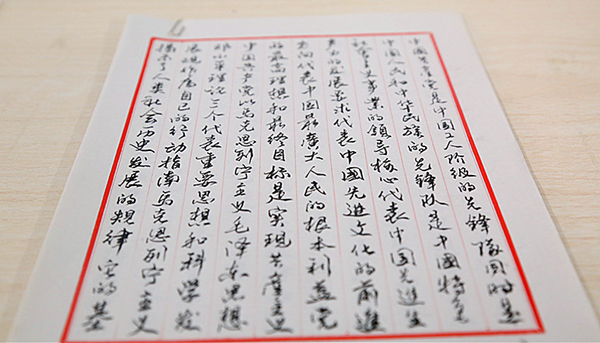 中國共產党是中國工人阶级的先锋隊同时是
中國人民和中华民族的先锋队是中國特色
社会主义事業的领导核心代表中国先進生
产力的发展要求代表中國先進文化的前進
方向代表中國最廣大人民的根本利益党
的最高理想和最终目标是实现共產主义
中國共产党以马克思列宁主义毛泽东思想
邓小平理论三个代表重要思想和科学发
展观作为自己的行动指南马克思列宁主义
揭示了人类社会历史发展的规律它的基